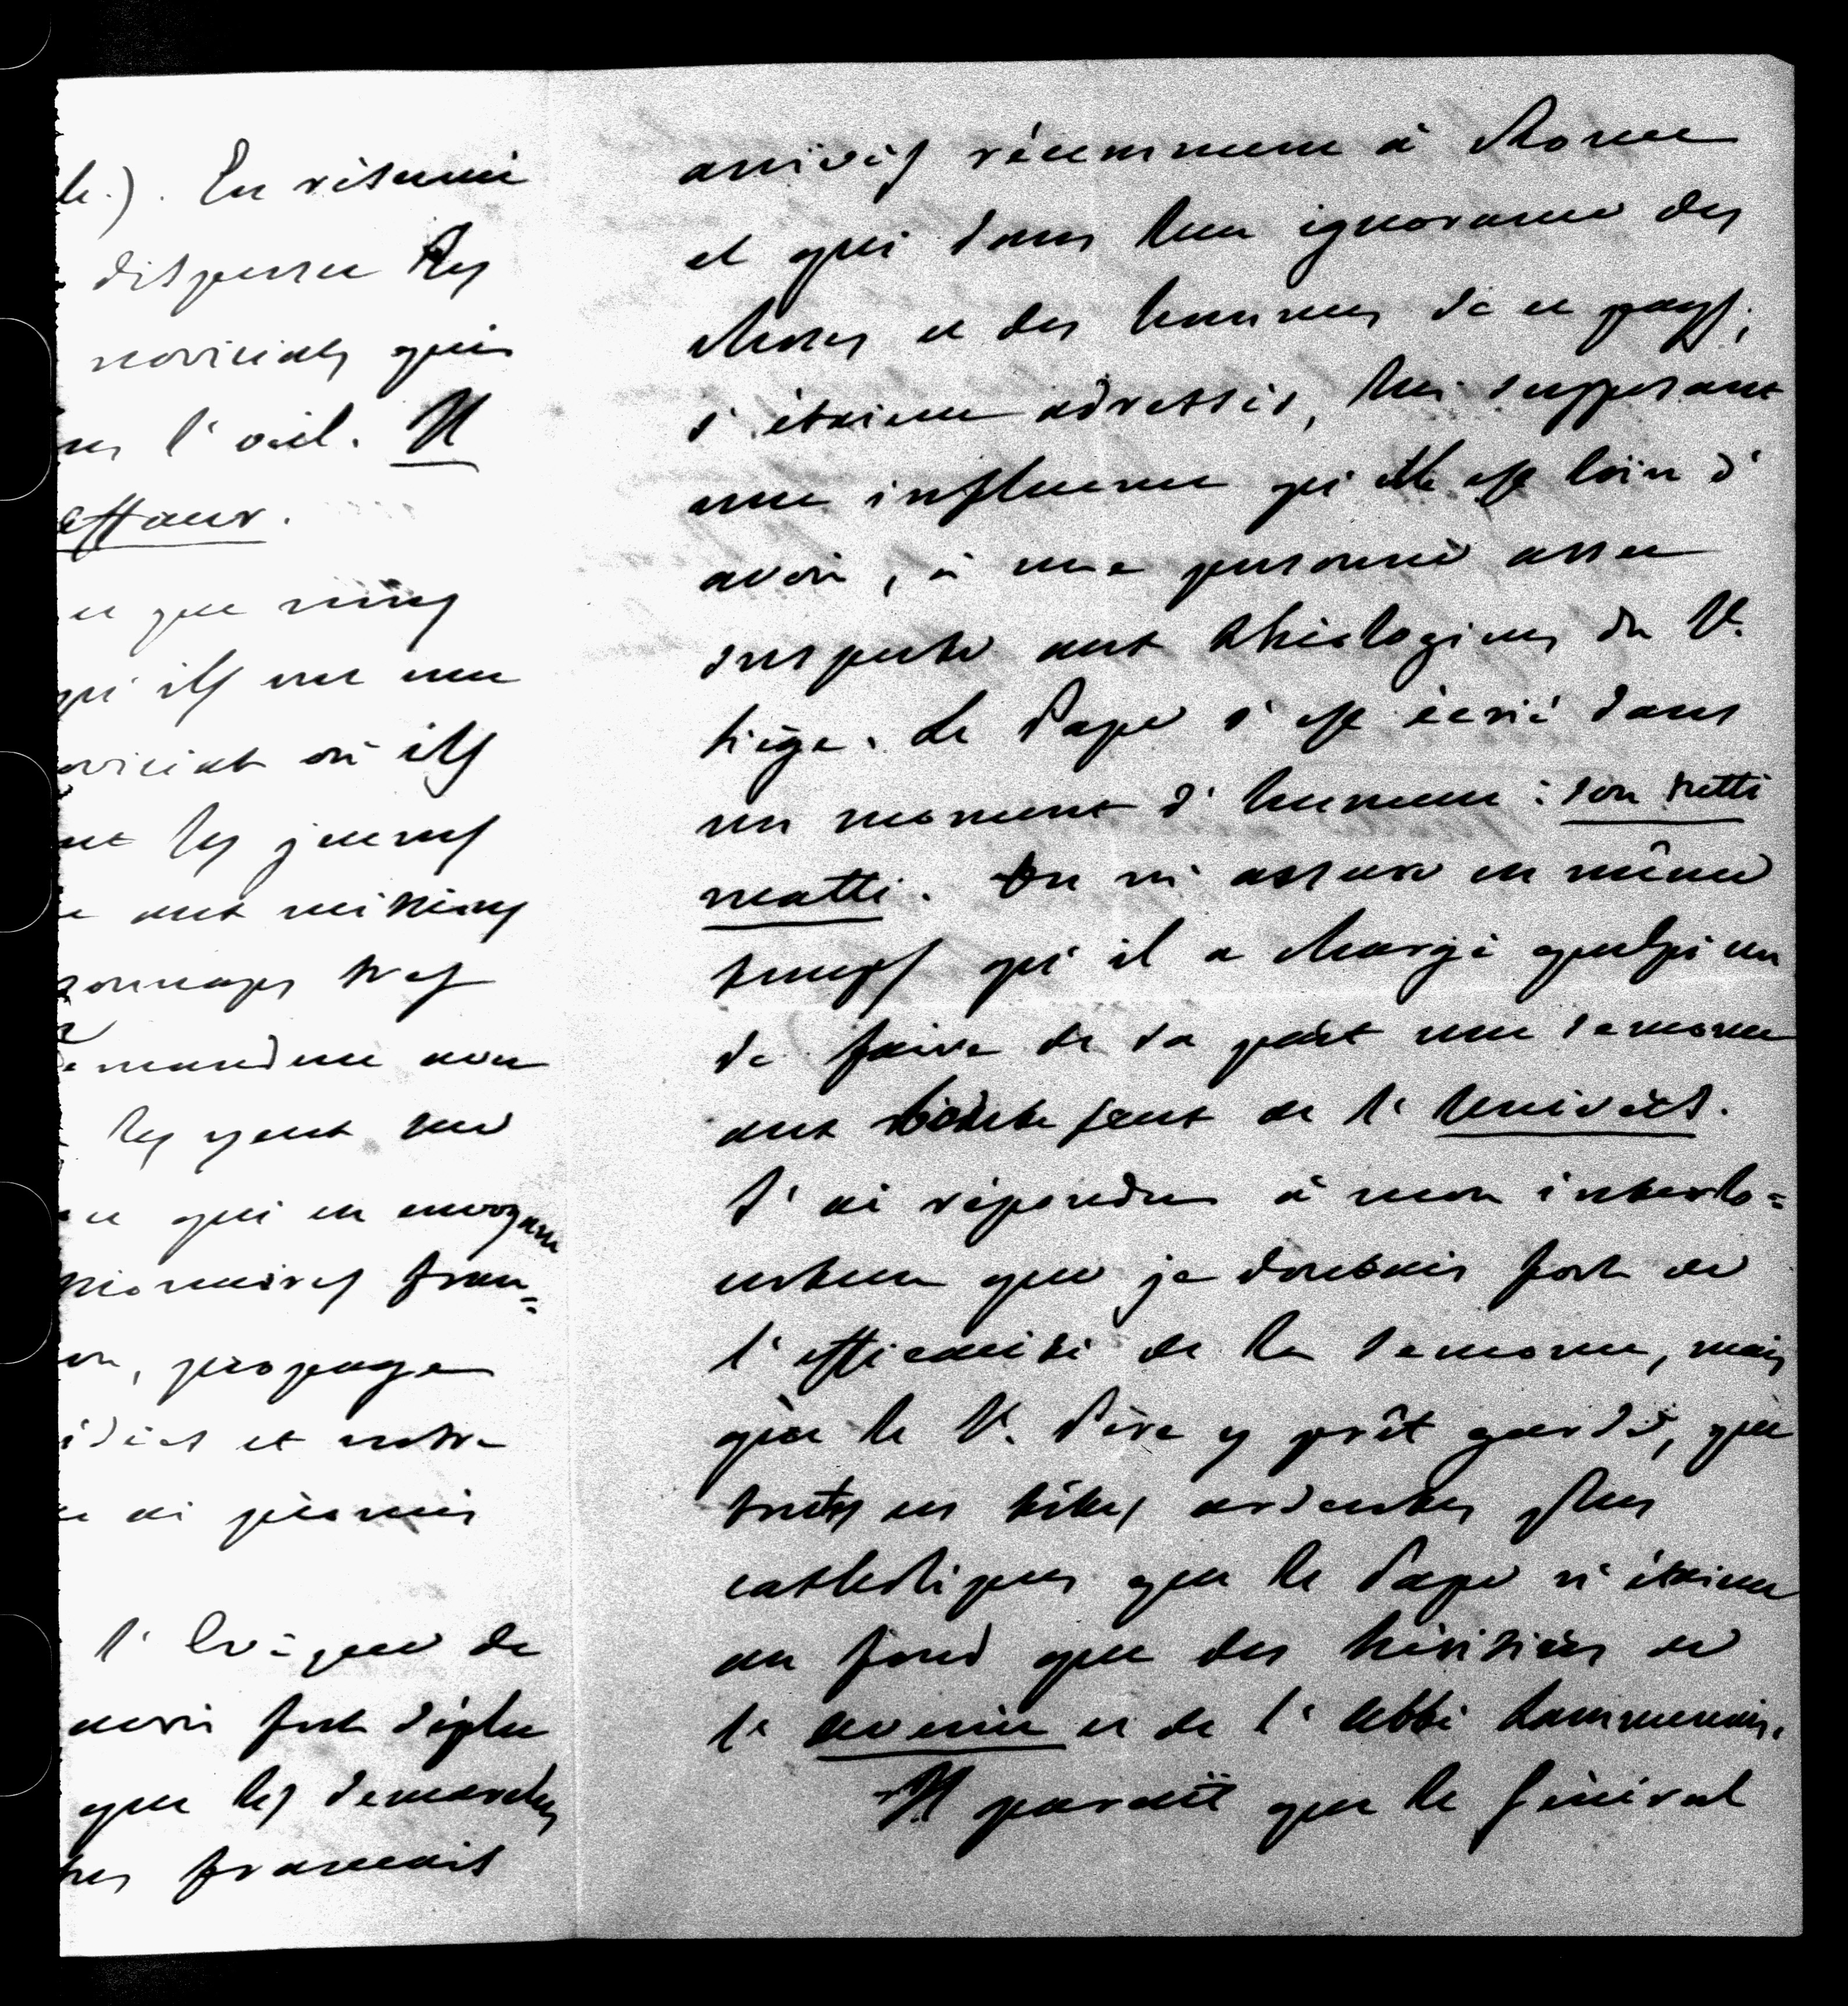 le.). En résumé
dispenser les
noviciats qui
l'œil. Il
effaux.
ce que
qu'ils ont une
oviciat où ils
ont les jeunes
aux missions
sonnages tres
emandent avec
les yeux sur
ce qui en
sionnaires fran=
on, propage
idées et notre
ai promis
l'Evêque de
avoir fort déplu
que les demarches
tres francais
arrivés récemment à Rome
et qui dans leur ignorance des
choses et des hommes de ce pays,
s'étaient adressés, lui supposant
une influence qu'elle est loin d'
avoir, à une personne assez
suspecte aux théologiens du St.
Siège. Le Pape s'est écrié dans
un moment d'humeur : son tutti
matti. On m'assure en même
temps qu'il a chargé quelqu'un
de faire de sa part une semonce
aux de l'Univers.
J'ai répondu à mon interlo=
cuteur que je doutais fort de
l'efficacité de la semonce, mais
que le St. Père y prît garde, que
toutes ces têtes ardentes plus
catholiques que le Pape n'étaient
au fond que des héritiers de
l'avenir et de l'abbé Lammenais.
Il parait que le Général